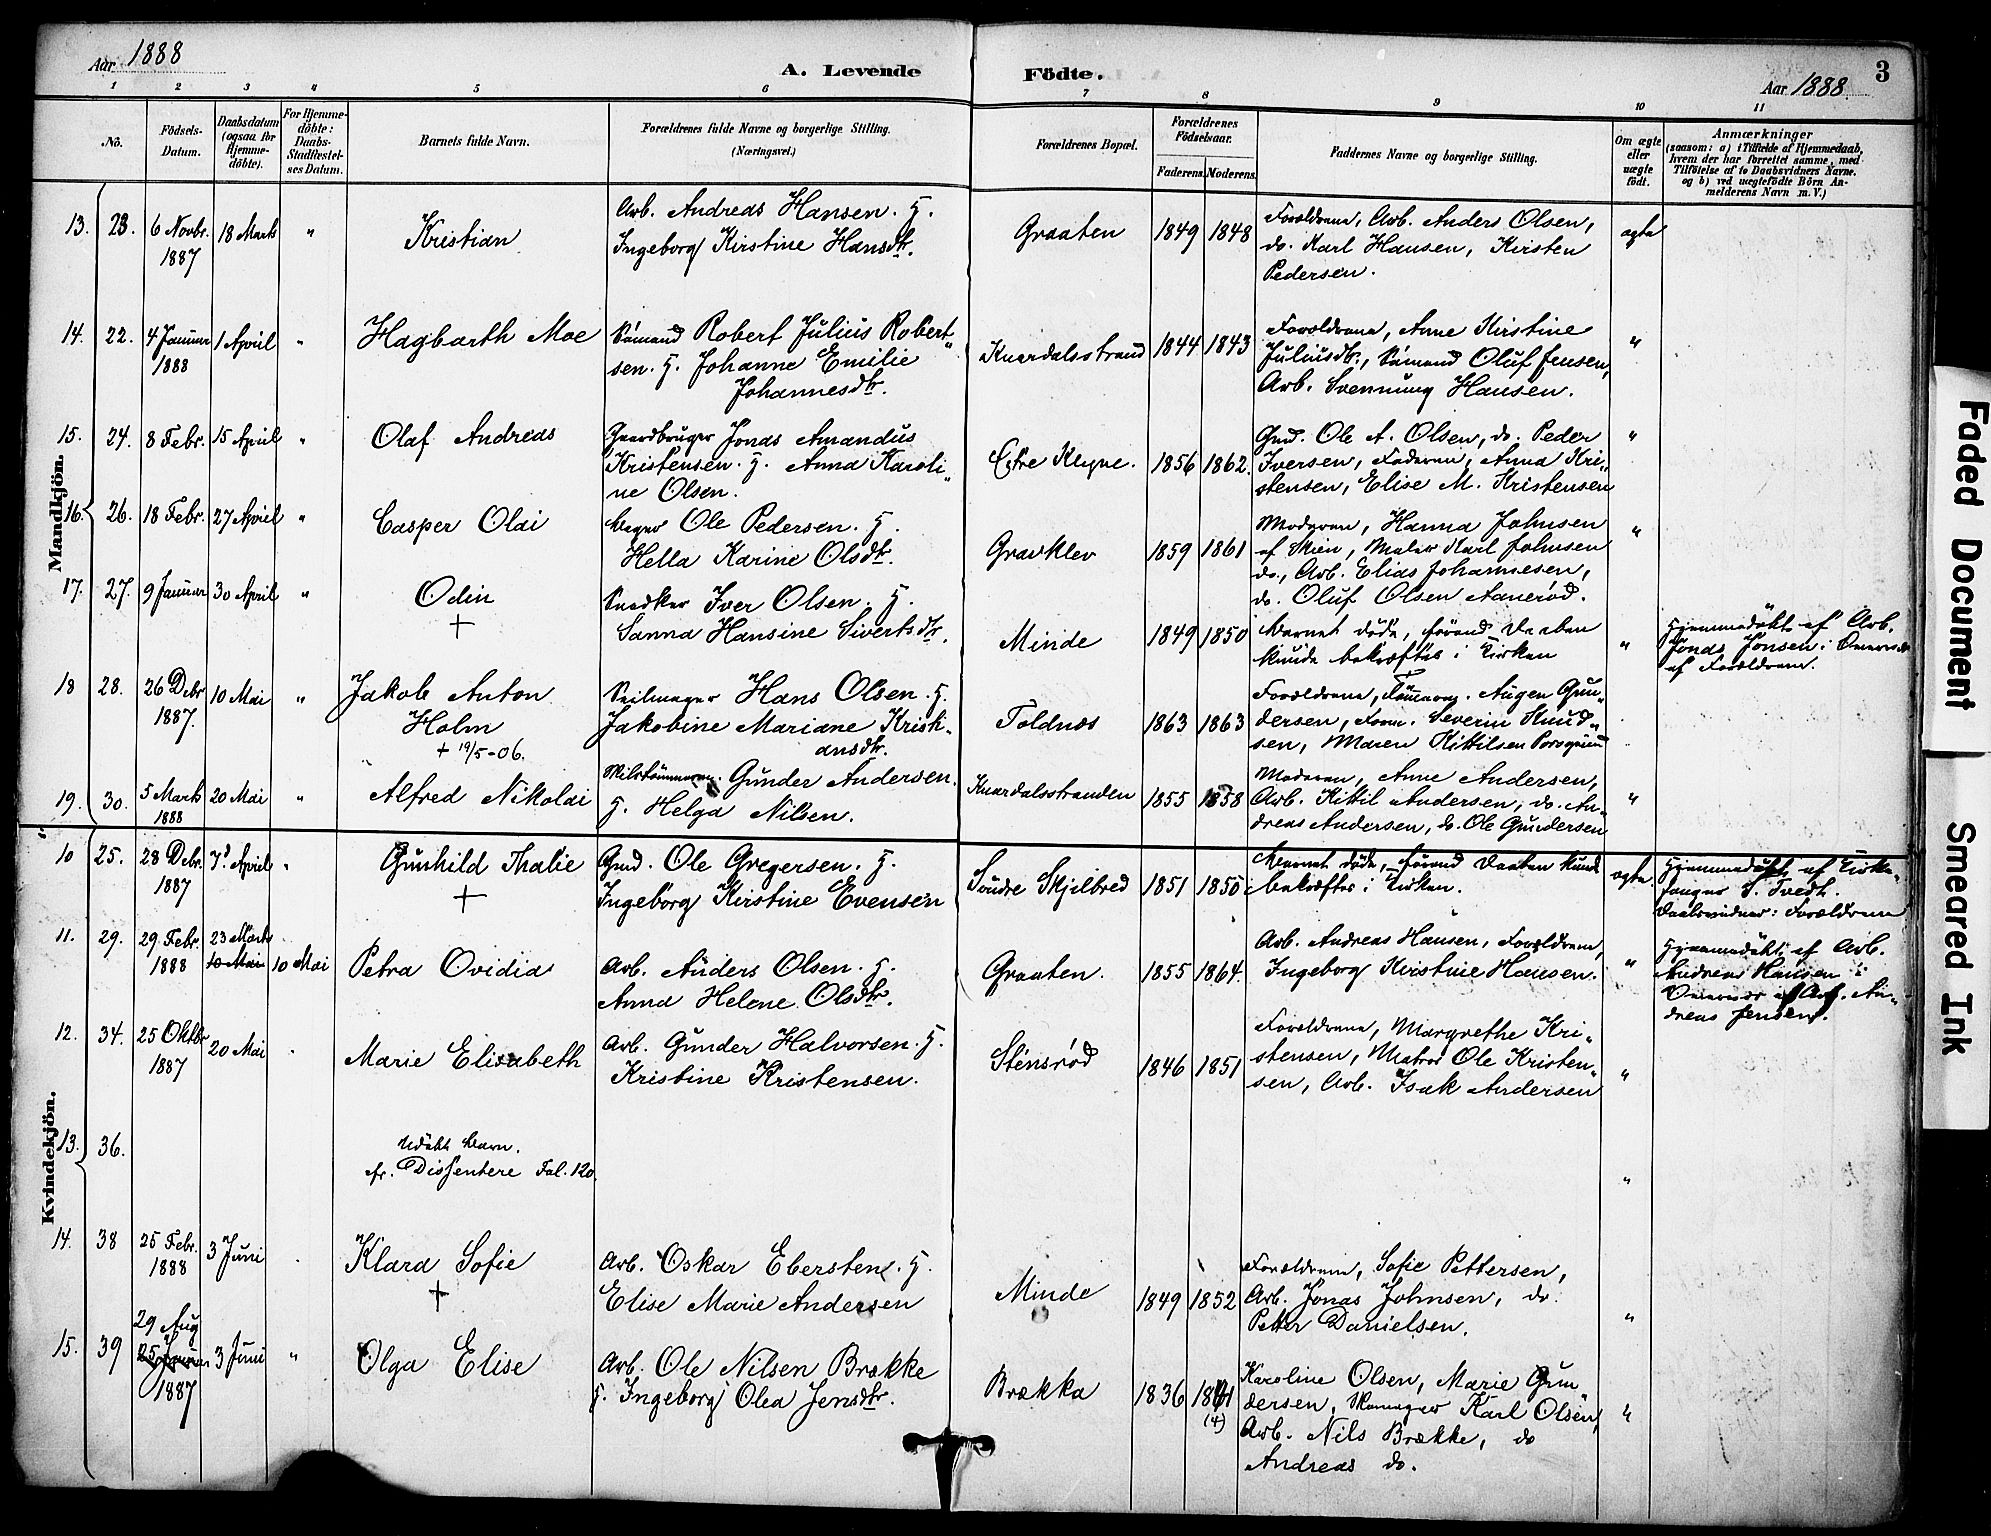 Aar 1888
A. Levende Födte.
Aar 1888
3
1 2 3 4 5 6 7 8 9 10 11
No.
Födsels-
Datum.
Daabsdatum
(ogsaa for
Hjemme-
döbte).
For Hjemme-
döbte:
Daabs-
Stadfæstel-
ses Datum.
Barnets fulde Navn.
Forældrenes fulde Navne og borgerlige Stilling.
(Næringsvei.)
Forældrenes Bopæl.
Forældrenes
Födselsaar.
Faderens. Moderens.
Faddernes Navne og borgerlige Stilling.
Om ægte
eller
uægte
født.
Anmærkninger
(saasom: a) i Tilfælde af Hjemmedaab,
hvem der har forrettet samme, med
Tilföielse af to Daabsvidners Navne,
og b) ved uægtefödte Börn An-
melderens Navn m. V.)
Mandkjön.
13. 23. 6 Novbr. 1887 18 Marts " Kristian
Arb. Andreas Hansen. H.
Ingeborg Kirstine Hansdtr.
Graaten 1849 1848
Forældrene, Arb. Anders Olsen,
do. Karl Hansen, Kirsten
Pedersen.
ægte
14. 22. 4 Januar 1888 1 April " Hagbarth Moe
Sømand Robert Julius Robert-
sen. H. Johanne Emilie
Johannesdtr.
Knardalsstrand 1844 1843
Forældrene, Anne Kirstine
Juliusdtr., Sømand Oluf Jensen,
Arb. Svennung Hansen.
"
15. 24. 8 Febr. 15 April " Olaf Andreas
Gaardbruger Jonas Amandus
Kristensen. H. Anna Karoli-
ne Olsen.
Østre Klyve. 1856 1862.
Gmd. Ole A. Olsen, do. Peder
Iversen, Faderen, Anna Kri-
stensen, Elise M. Kristensen
"
16. 26. 18 Febr. 27 April " Casper Olai
Ole Pedersen. H.
Hella Karine Olsdtr.
Gravklev 1859 1861
Moderen, Hanna Johnsen
af Skien, Maler Karl Johnsen
do., Arb. Elias Johannesen,
do. Oluf Olsen Aanerød.
"
17. 27. 9 Januar 30 April " Odin
+
Snedker Iver Olsen. H.
Sanna Hansine Sivertsdtr.
Minde 1849 1850
Barnet døde, førend Daaben
kunde bekræftes i Kirken
"
Hjemmedøbt af Arb.
Jonas Jonsen i Overvær
af Forældrene.
18 28. 26 Debr. 1887. 10 Mai " Jakob Anton
Holm
+ 19/5-06.
Seilmager Hans Olsen. H.
Jakobine Mariane Kristi-
ansdtr.
Toldnæs 1863 1863
Forældrene, Tømmerm. Augen Gun-
dersen, Form. Severin Knud-
sen, Maren Kittilsen Porsgrund
19. 30. 5 Marts 1888 20 Mai " Alfred Nikolai
Gunder Andersen.
H. Helga Nilsen.
Knardalsstranden 1855 1858
Moderen, Anne Andersen,
Arb. Kittil Andersen, do. An-
dreas Andersen, do. Ole Gundersen
"
Kvindekjön.
10 25. 28 Debr. 1887 7de April " Gunhild Thalie
+
Gmd. Ole Gregersen. H.
Ingeborg Kirstine Evensen
Søndre Skjelbred 1851 1855
Barnet døde, førend Daaben kunde
bekræftes i Kirken.
ægte
Hjemmedøbt af Kirke-
sanger S. Tvedt.
Daabsvidner: Forældrene
11. 29. 29 Febr. 1888 23 Marts 10 Mai 10 Mai Petra Ovidia
Arb. Anders Olsen. H.
Anna Helene Olsdtr.
Graaten. 1855 1864.
Arb. Andreas Hansen, Forældrene,
Ingeborg Kirstine Hansen.
"
Hjemmedøbt af Arb.
Andreas Hansen i
Overvær af Arb. An-
dreas Jensen.
12. 34. 25 Oktbr 1887 20 Mai Marie Elisabeth
Arb. Gunder Halvorsen. H.
Kristine Kristensen.
Stensrød 1846 1851
Forældrene, Margrethe Kri-
stensen, Matros Ole Kristen-
sen, Arb. Isak Andersen
"
13. 36.
Udøbt Barn.
fr. Dissentere Fol. 120.
"
14. 38 25 Febr. 1888 3 Juni Klara Sofie
+
Arb. Oskar Ebersten. H.
Elise Marie Andersen
Minde 1849 1852
Forældrene, Sofie Pettersen,
Arb. Jonas Johnsen, do.
Petter Danielsen.
"
15. 39 29 Aug 25 Januar 1887 3 Juni " Olga Elise
Arb. Ole Nilsen Brække
H. Ingeborg Olea Jensdtr.
Brækka 1836 1841
(4)
Karoline Olsen, Marie Gun-
dersen, Karl Olsen,
Arb. Nils Brække, do
Andreas do.
"
Faded Document
Smeared Ink